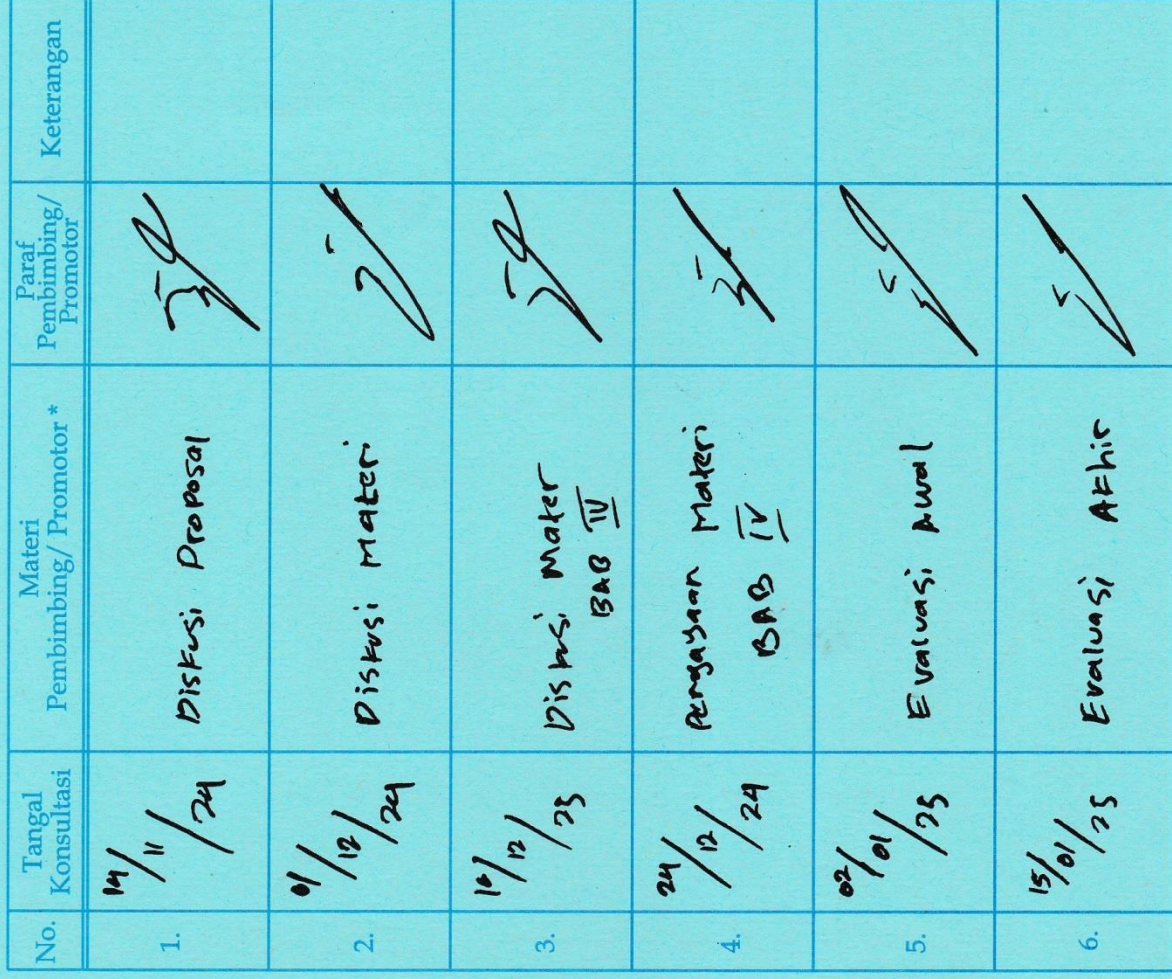 No. Tangal Konsultasi Materi Pembimbing/ Promotor * Paraf Pembimbing/ Promotor Keterangan
1. 14/11/24 Diskusi Proposal
2. 01/12/24 Diskusi Materi
3. 12/25 Diskusi Mater
BAB IV
4. 24/12/24 Pengayaan Materi
BAB IV
5. 02/01/25 Evaluasi Awal
6. 15/01/25 Evaluasi Akhir